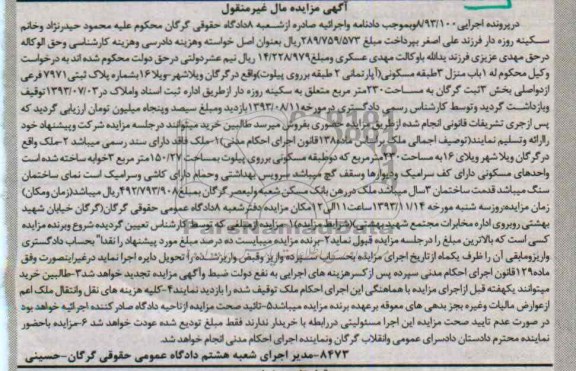 آگهی مزایده مال غیرمنقول
در پرونده اجرایی ۸/۹۳/۱۰۰ بموجب دادنامه واجرائیه صادره ازشعبه ۸دادگاه حقوقی گرگان محکوم علیه محمود حیدرنژاد وخانم
سکینه روزه دار فرزند علی اصغر بپرداخت مبلغ ۲۸۹/۷۵۹/۵۷۳ریال بعنوان اصل خواسته وهزینه دادرسی وهزینه کارشناسی وحق الوکاله
درحق مهدی عزیزی فرزند یدالله باوکالت مهدی عسکری ومبلغ ۱۴/۲۲۸/۹۷۹ریال نیم عشردولتی درحق دولت محکوم شده اند به درخواست
وکیل محکوم له ۱باب منزل ۳طبقه مسکونی(آپارتمانی ۲ طبقه برروی پیلوت)واقع درگرگان ویلاشهر-ویلا۱۶بشماره پلاک ثبتی ۷۹۷۱فرعی
ازدواصلی بخش ۳ثبت گرگان به مساحت ۲۳۰متر مربع متعلق به سکینه روزه دار ازطریق اداره ثبت اسناد واملاک در۱۳۹۳/۰۷/۰۳توقیف
وبازداشت گردید وتوسط کارشناس رسمی دادگستری درمورخه ۱۳۹۳/۰۸/۱۱بازدید ومبلغ سیصد وپنجاه میلیون تومان ارزیابی گردید که
پس ازجری تشریفات قانونی انجام شده ازطریق مزایده حضوری بفروش میرسد طالبین خرید میتوانند درجلسه مزایده شرکت وپیشنهاد خود
راارائه وتسلیم نمایند(توصیف اجمالی ملک برابرماده ۱۳۸قانون اجرای احکام مدنی)۱-ملک فاقد دارای سند رسمی میباشد ۲-ملک واقع
در گرگان ویلا شهر ویلای ۱۶ به مساحت ۲۳۰مترمربع که دوطبقه مسکونی برروی پیلوت بمساحت ۱۵۰/۲۷متر مربع ۳خوابه ساخته شده است
واحدهای مسکونی دارای کف سرامیک ودیوارها وسقف گچ میباشد سرویس بهداشتی وحمام دارای کاشی وسرامیک است نمای ساختمان
سنگ میباشد قدمت ساختمان ۳سال میباشد ملک دررهن بانک مسکن شعبه ولیعصر گرگان بمبلغ ۴۹۲/۷۹۳/۹۰۸ریال میباشد(زمان ومکان)
زمان مزایده:روزسه شنبه مورخه ۱۳۹۳/۱۱/۱۴ساعت ۱۱الی ۱۲مکان مزایده دفترشعبه ۸دادگاه عمومی حقوقی گرگان(گرگان خیابان شهید
بهشتی روبروی اداره مخابرات مجتمع شهید بهشتی)(شرایط مزایده)۱-مزایده ازمبلغی که توسط کارشناس تعیین گردیده شروع وبرنده مزایده
کسی است که بالاترین مبلغ را درجلسه مزایده قبول نماید۲-برنده مزایده میبایست ده درصد مبلغ مورد پیشنهاد را نقدا" بحساب دادگستری
واریزومابقی آن را ظرف یکماه ازتاریخ اجرای مزایده بحساب سپرده واریز وقبض واریزشده را تحویل دایره اجرا نماید درغیراینصورت وفق
ماده ۱۲۹قانون اجرای احکام مدنی سپرده پس ازکسرهزینه های اجرایی به نفع دولت ضبط وآگهی مزایده تجدید خواهد شد۳-طالبین خرید
میتوانند یکهفته قبل ازاجرای مزایده با هماهنگی این اجرای احکام ملک توقیف شده را بازدید نمایند۴-کلیه هزینه های نقل وانتقال ملک اعم
ازعوارض مالیات وغیره بجز بدهی های معوقه برعهده برنده مزایده میباشد۵-تائید صحت مزایده ازناحیه دادگاه صادر کننده اجرائیه خواهد بود
در صورت عدم تایید صحت مزایده این اجرا مسئولیتی دررابطه با خریدار ندارند فقط مبلغ تودیع شده عودت خواهد شد ۶-مزایده باحضور
نماینده محترم دادستان دادسرای عمومی وانقلاب گرگان ونماینده اجرای احکام مدنی انجام خواهد شد.
۸۴۷۳-مدیر اجرای شعبه هشتم دادگاه عمومی حقوقی گرگان-حسینی